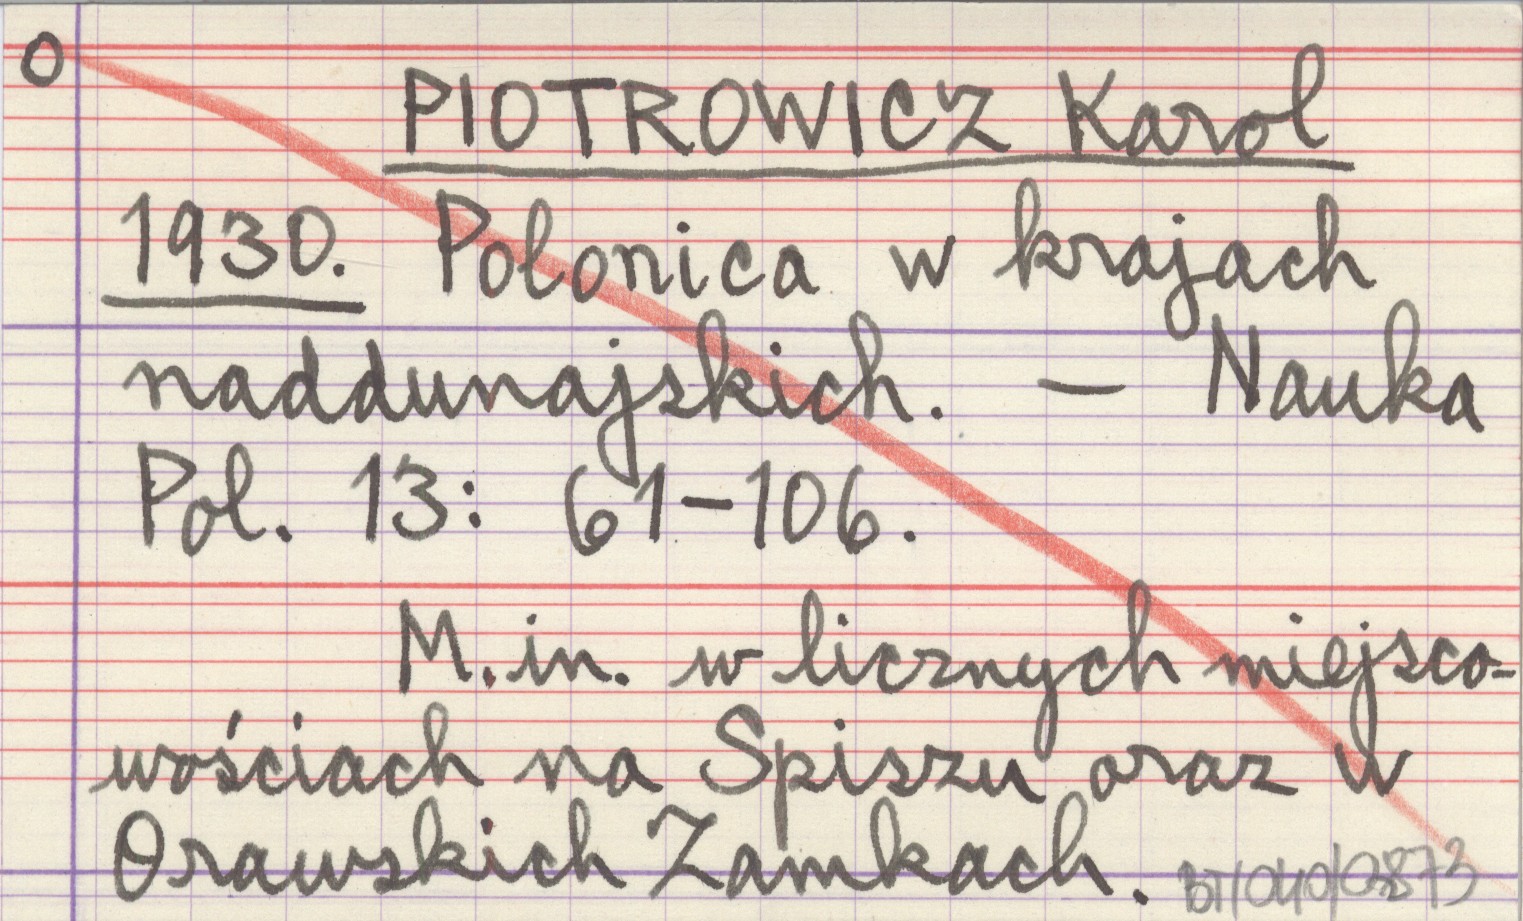 O
PIOTROWICZ Karol
1930. Polonica w krajach
naddunajskich. — Nauka
Pol. 13: 61-106.
M.in. w licznych miejsco-
wościach na Spiszu oraz w
Orawskich Zamkach.
BT/040/03873